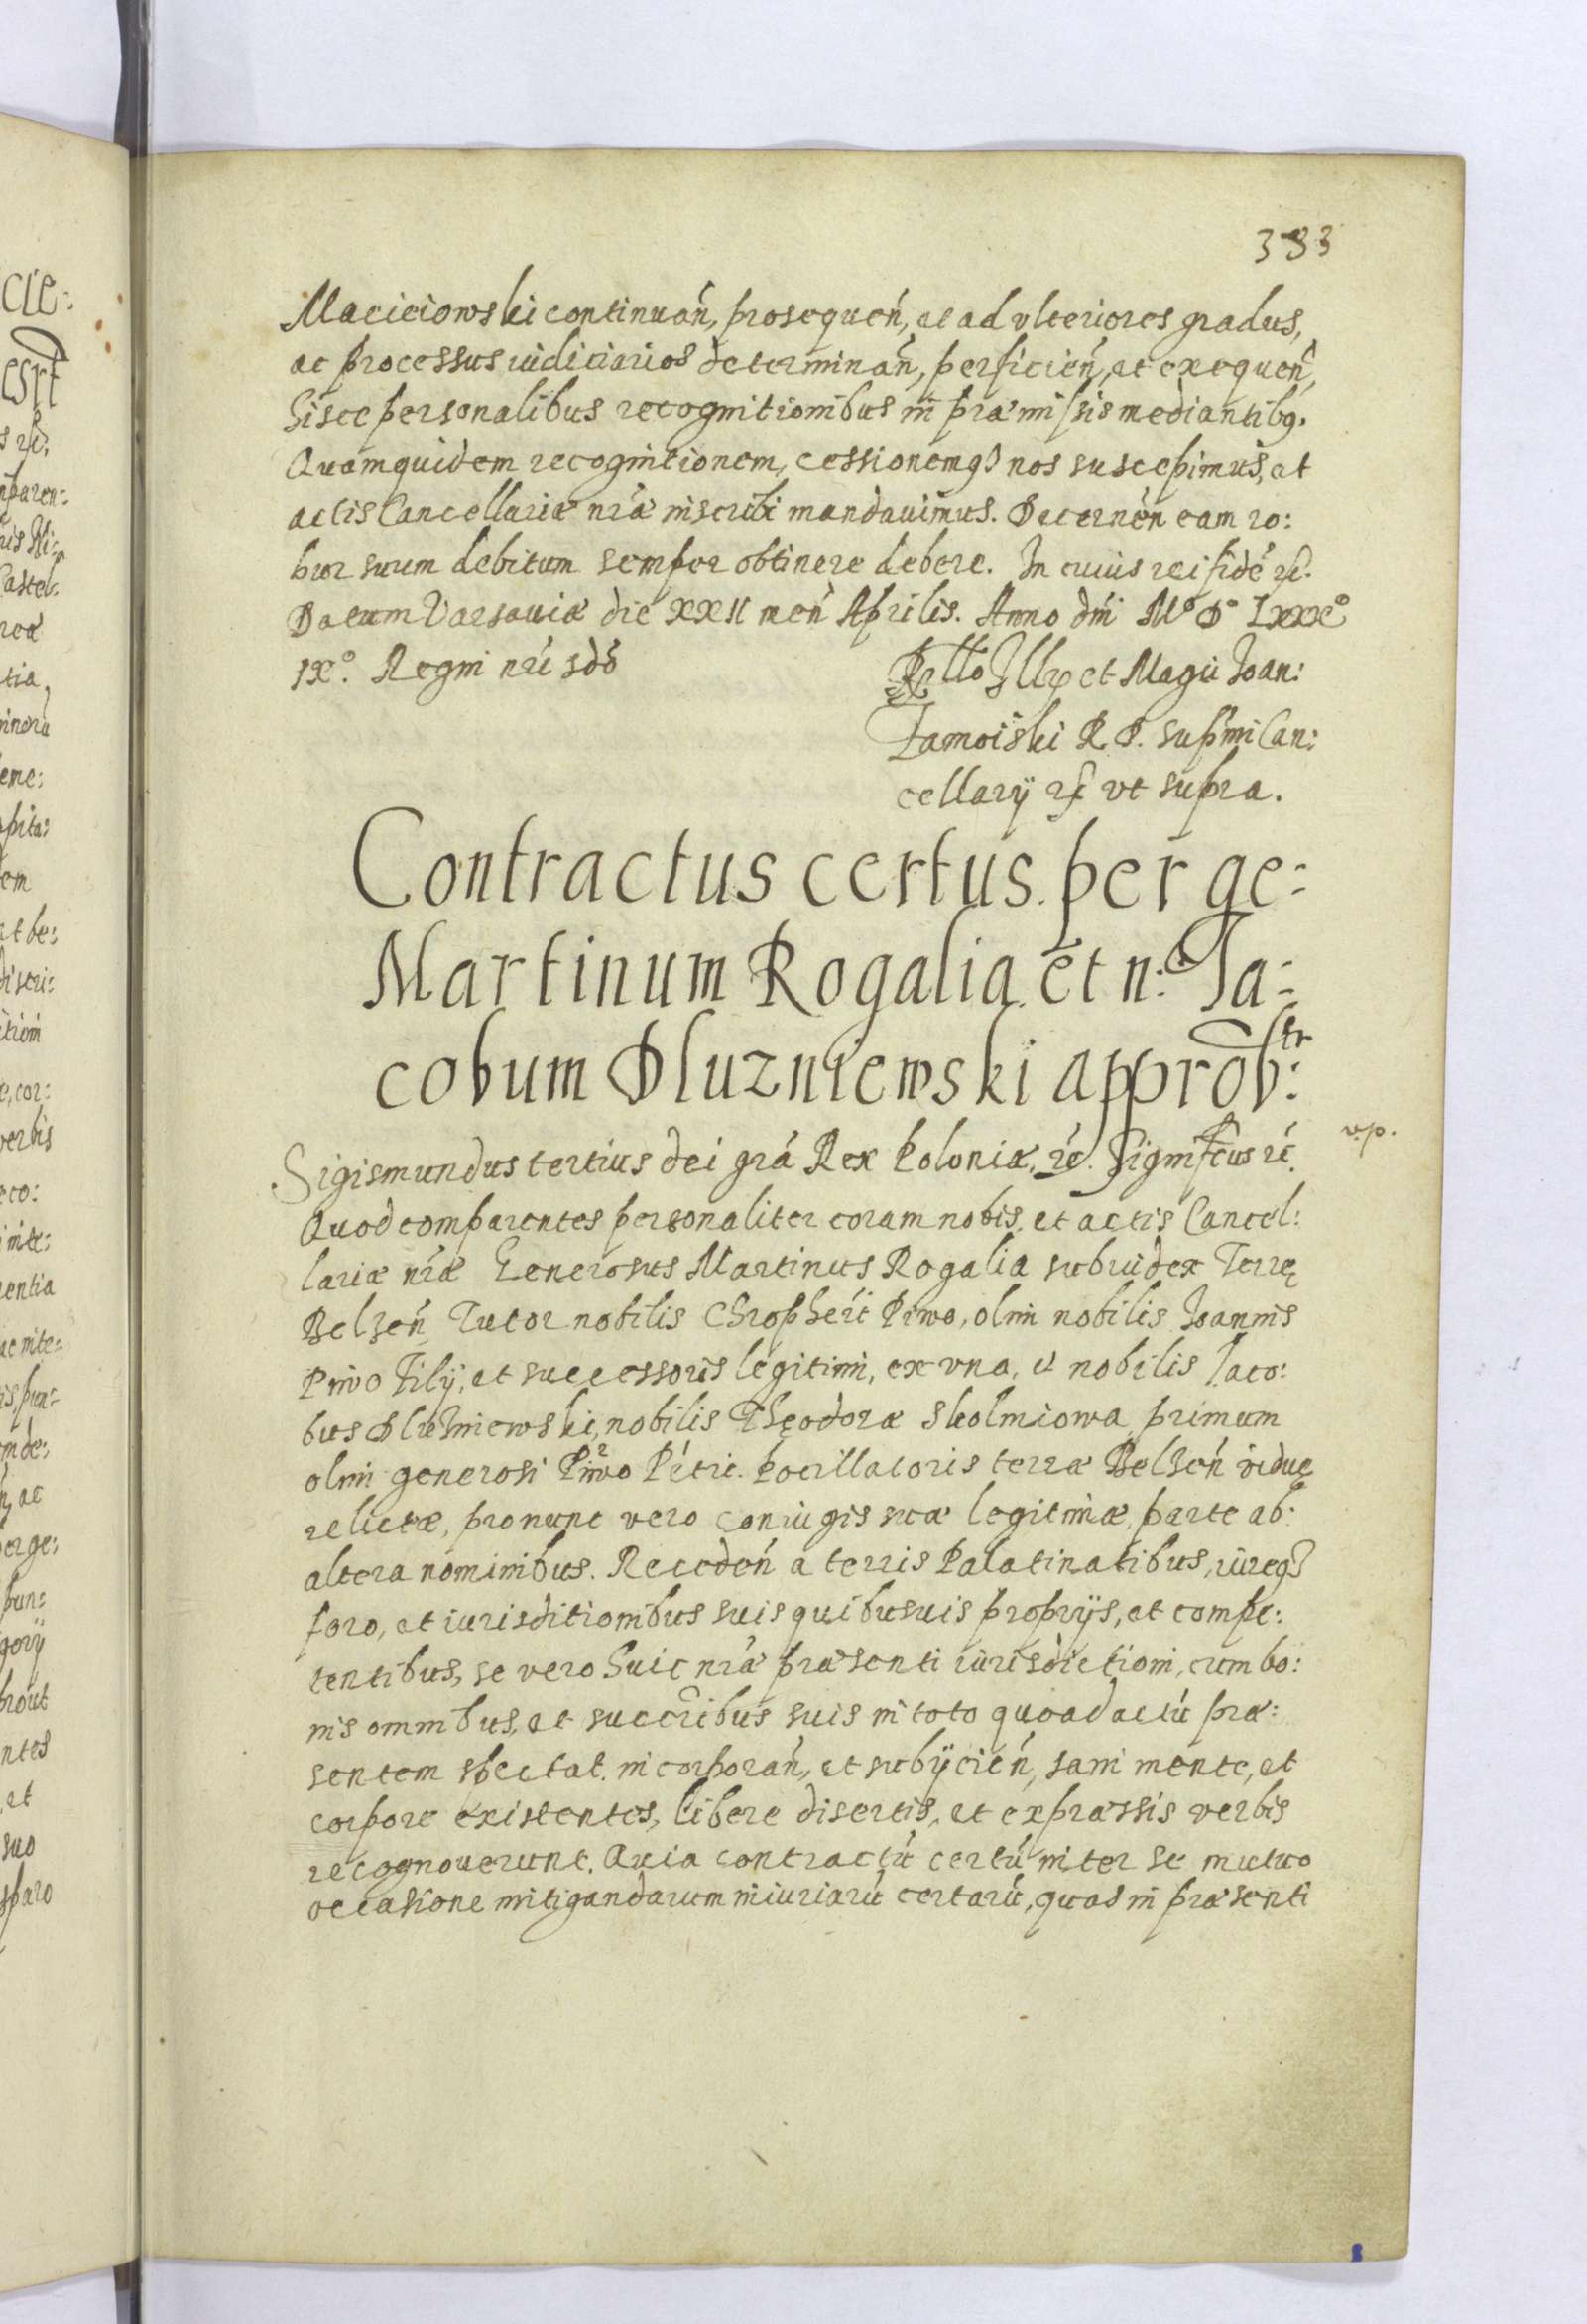 333
Macieiowski continuań, prosequeń, et ad vlteriores gradus,
ac processus iudiciarios determinań, perficień, et exequeń,
hisce personalibus recognitionibus in præmissis mediantibq.
Quamquidem recognitionem, cessionemq3 nos suscepimus, et
actis Cancellariæ nræ inscribi mandauimus. Decerneń eam ro:
bur suum debitum semper obtinere debere. In cuius rei fidé rć.
Datum Varsauiæ die XXII meń Aprilis. Anno dńi Mº Dº Lxxxº
IXº. Regni nŕi sdó
Rello Illꝛ et Magci Ioan:
Zamoiski R. P. supmi Can:
cellarij rć vt supra.
Contractus certus per ge:
Martinum Rogalia et n: Ja:
cobum Dluzniewski approb:tr
Sigismundus tertius dei grá Rex Poloniæ, rć. Significus rć. v.p.
Quod comparentes personaliter coram nobis, et actis Cancel:
lariæ nræ Generosus Martinus Rogalia subiudex Terrę
Belzeń Tutor nobilis Chropheri Piwo, olim nobilis Joannis
Piwo Filij, et successoris legitimi, ex vna, et nobilis Jaco:
bus Dluzniewski, nobilis Theodoræ Skolmiowa primum
olim generosi Piwo Petri Pocillatoris terræ Belzeń viduę
relictæ, pronunc vero coniugis suæ legitimæ, parte ab:
altera nominibus. Recedeń a terris Palatinatibus, iureq3
foro, et iurisditionibus suis quibusuis proprijs, et compe:
tentibus, se vero huic nræ præsenti iurisdictioni, cum bo:
nis omnibus, et succribus suis in toto quoad actú præ:
sentem spectat. incorporań, et subijcień, sani mente, et
corpore existentes, libere disertis, et expræssis verbis
recognouerunt. Quia contractú certú inter se mutuo
occasione mitigandarum iniuriarú certarú, quas in præsenti